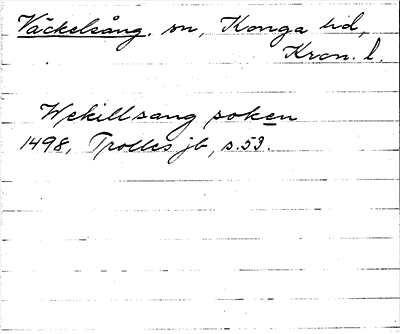 Väckelsång. sn, Konga hd,
Kron. l.
Wekillsang soken
1498, Trolles jb, s. 53.